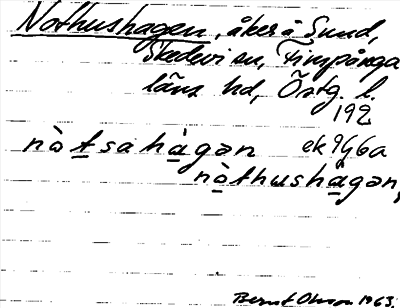 Nothushagen, åker å Sund,
Skedevi sn, Finspånga
läns hd, Östg. l.
192
nòtsahàgən ek 946a
nòthushàgən,
Bernt Olsson 1963.